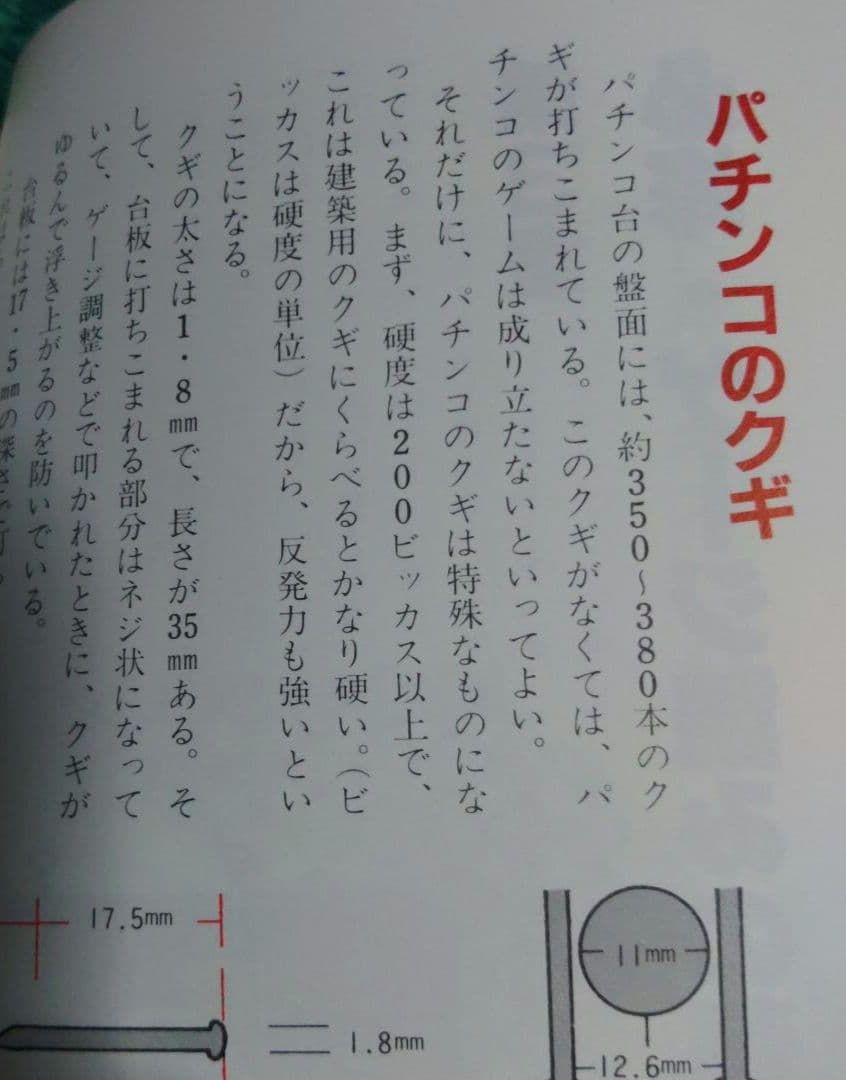 パチンコのクギ
パチンコ台の盤面には、約350〜380本のク
ギが打ちこまれている。このクギがなくては、パ
チンコのゲームは成り立たないといってよい。
それだけに、パチンコのクギは特殊なものにな
っている。まず、硬度は200ビッカス以上で、
これは建築用のクギにくらべるとかなり硬い。(ビ
ッカスは硬度の単位)だから、反発力も強いとい
うことになる。
クギの太さは1・8㎜で、長さが35㎜ある。そ
して、台板に打ちこまれる部分はネジ状になって
いて、ゲージ調整などで叩かれたときに、クギが
ゆるんで浮き上がるのを防いでいる。
台板には17・5㎜の深さで打
17.5mm
1.8mm
11mm
12.6mm